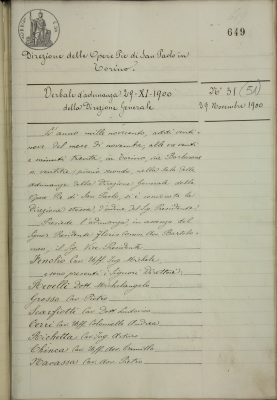 649
Direzione delle Opere Pie di San Paolo in
Torino.
Verbale d'adunanza 29-XI-1900
della Direzione Generale
N.º 31 (51)
29 Novembre 1900
L'anno mille novecento, addì venti
nove del mese di novembre, alle ore venti
e minuti trenta, in Torino, via
e vendita, piano secondo, nella sala delle
adunanze della Direzione Generale delle
Opere Pie di San Paolo, si è convocata la
Direzione stessa d'ordine del Sig. Presidente.
Presiede l'adunanza in assenza del
Signor Presidente
il Sig. Vice Presidente
Fenolio Cav. Uff. Ing. Michele
e sono presenti i Signori Direttori:
Arcelli Dott. Michelangelo
Grosso Cav. Pietro
Scarfiotti Cav. Dott. Lodovico
Cav. Uff. Colonnello Andrea
Richetta Cav. Ing. Arturo
Chinca Cav. Uff. Avv. Camillo
Ravassa Cav. Avv. Pietro